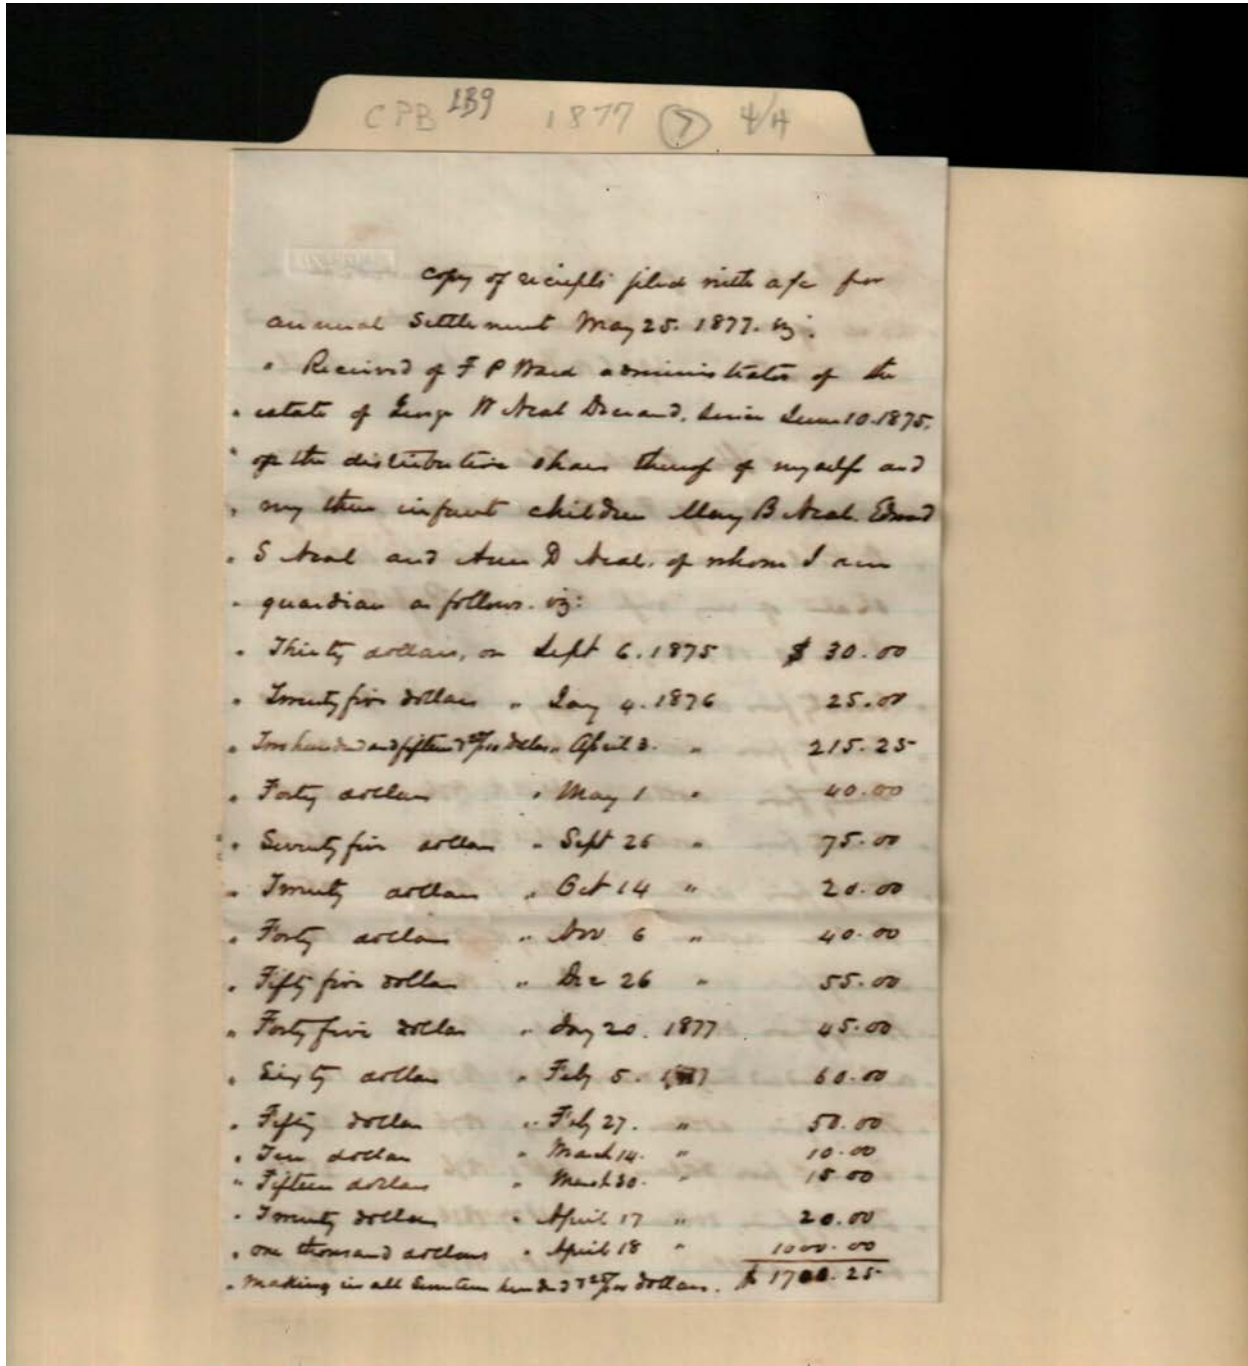 CPB LB9 1877 7 4/A
Copy of receipts filed with a/c for
annual Settlement May 25. 1877. viz:
" Received of F P Ward administrator of the
" estate of George W Neal Deceased. Since June 10. 1875.
" of the distributive share thereof of myself and
" my three infant children Mary B Neal. Edward
" S Neal and Ann D Neal. of whom I am
" guardian as follows. viz:
" Thirty dollars, on Sept 6. 1875 $ 30.00
" Twenty five dollars " Jany 4. 1876 25.00
" Two hundred and fifteen & 25/100 dollars " April 3. " 215.25
" Forty dollars " May 1 " 40.00
" Seventy five dollars " Sept 26 " 75.00
" Twenty dollars " Oct 14 " 20.00
" Forty dollars " Nov 6 " 40.00
" Fifty five dollars " Dec 26 " 55.00
" Forty five dollars " Jany 20. 1877 45.00
" Sixty dollars " Feby 5. 60.00
" Fifty dollars " Feby 27. " 50.00
" Ten dollars " March 14. " 10.00
" Fifteen dollars " March 30. " 15.00
" Twenty dollars " April 17 " 20.00
" One thousand dollars " April 18 " 1000.00
" Making in all Seventeen hundred & 25/100 dollars. $ 1700.25